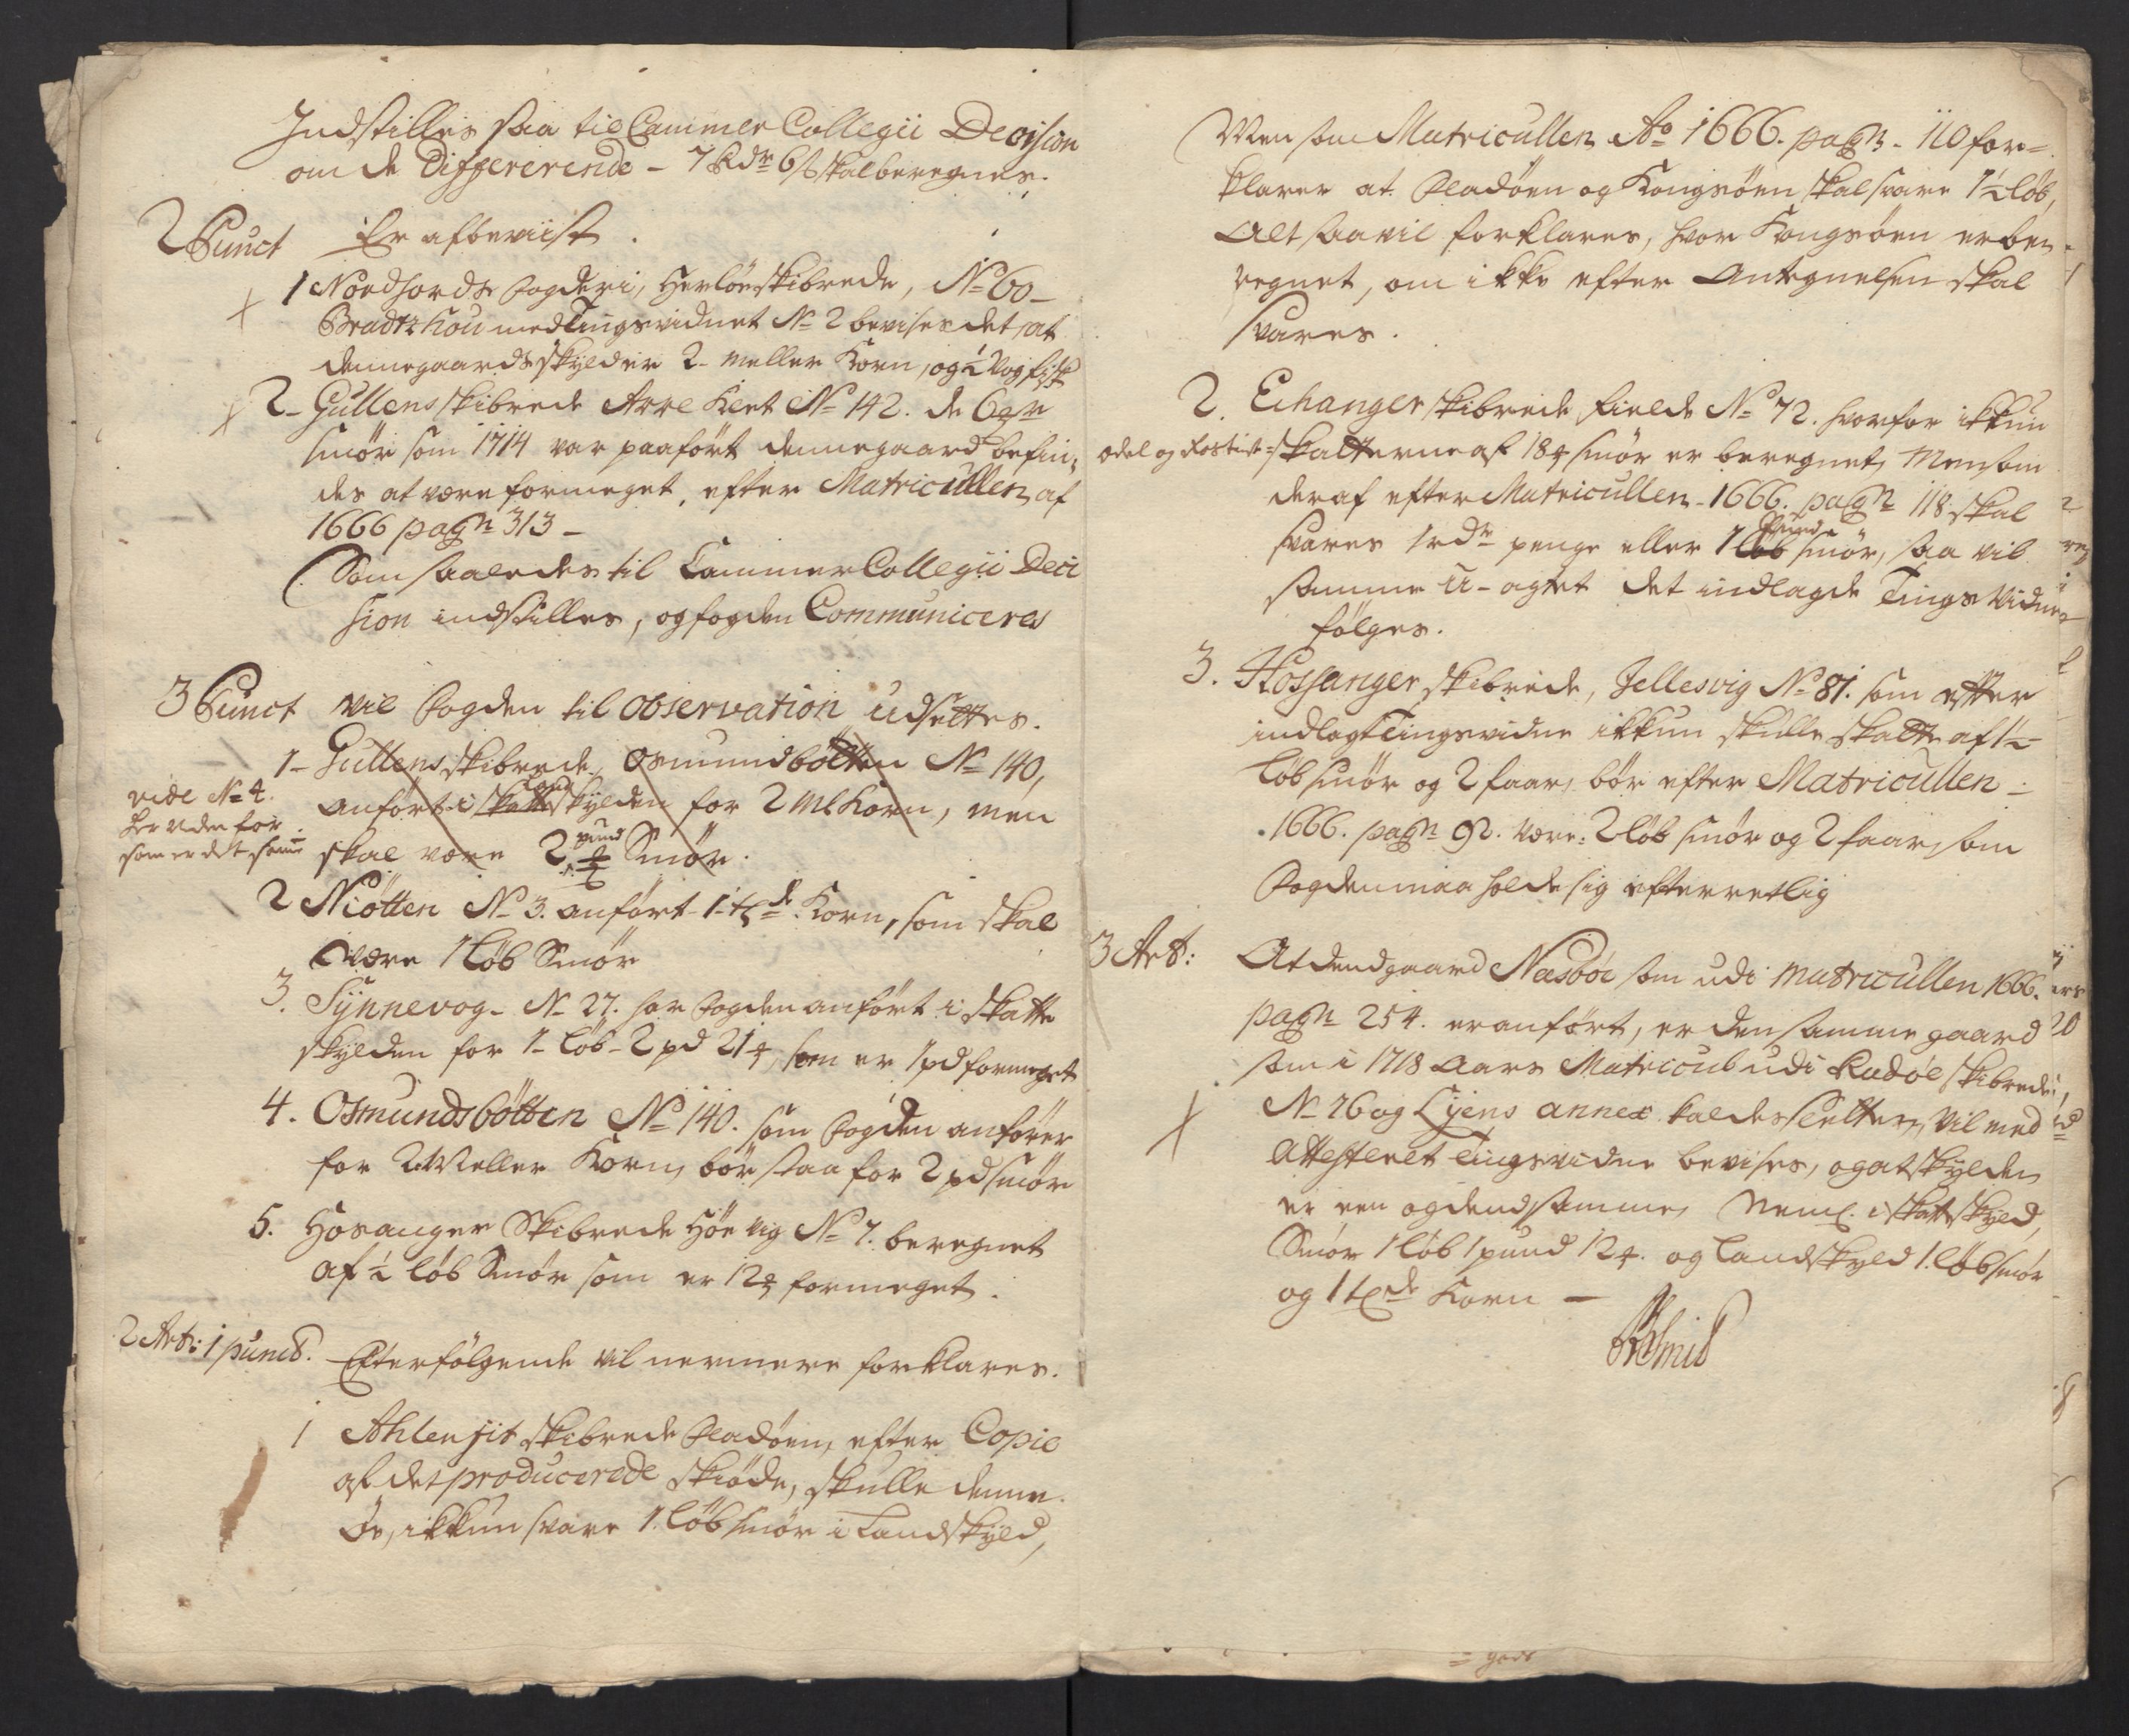 Indstilles saa til Cammer Collegii Decision
om de Differerende - 7 Rdr 6 s skal beregnes.
2 Punct Er afbeviist.
1 Nordhords Fogderi, Herløe skibrede, No 60 -
Bradtzhou med Tingsvidnet No 2 bevises det, at
denne gaards skyld er 2 - meller Korn, og ½ Vog fisk
2 - Gullens skibrede Arre Klet No 142. de 6
smör som 1714 var paaført denne gaard befin-
des at være formeget, efter Matricullen af
1666 pagn 313 -
Som saaledes til Cammer Collegii Deci
sion indstilles, og fogden Communiceres
3 Punct vil Fogden til observation udsettes.
1 - Gullens skibrede, Osmundbøtten No 140,
vide No 4.
her neden for
som er det samme
anført i skatte Land skylden for 2 Ml Korn, men
skal være 2 pund Smör.
2 Niötten No 3. anført 1 - Korn, som skal
være 1 Løb Smör
3. Synnevog - No 27. har Fogden anført i skatte
skylden for 1 - Løb - 2 pd 21 , som er 1 pd formeget
4. Osmundsbøtten No 140. som Fogden anfører
for 2 Meller Korn, bör staa for 2 pd smör
5. Hosanger Skibrede Höe vig No 7. beregnet
af ½ løb Smör som er 12 formeget.
2 Art: 1 punct. Efterfølgende vil nermere forklares.
1 Ahlenfit skibrede Fladöen, efter Copie
af det producerede skiøde, skulle denne
Øe, ikkun svare 1. Løb smör i Landskyld,
Men som Matricullen Ao 1666. pagn - 110 for-
klarer at Fladöen og Kongsöen skal svare 1½ Løb,
Alt saa vil forklares, hvor Kongsöen er be-
regnet, om ikke efter Antegnelsen skal
svares.
2. Echanger skibrede Fielde No 72. hvorfor ikkun
odel og skatterne af 18 smör er beregnet, Men som
deraf efter Matricullen - 1666. pagn 118 skal
svares 1 rdr penge eller 1 Løb Pund smör, saa vil
samme u-agtet det indlagde Tings Vidne
følges.
3. Hosanger skibrede, Jellesvig No 81. som efter
indlagt Tingsvidne ikkun skulle skatte af 1½
Løb smör og 2 faar, bör efter Matricullen -
1666. pagn 92. være: 2 Løb smör og 2 faar, som
Fogden maa holde sig efterretlig
3 Art: At dend gaard Næsböe som udi Matricullen 1666.
pagn 254. er anført, er den samme gaard
som i 1718 Aars Matricul udi Radöe skibrede,
No 26 og Lyens annex kaldes Sletten, Vil med
Attesteret Tingsvidne bevises, og at skylden
er een og dend samme, Neml. i skatteskyld,
Smör 1 Løb 1 pund 12 . og Landskyld 1. løb smör
og 1 Korn -